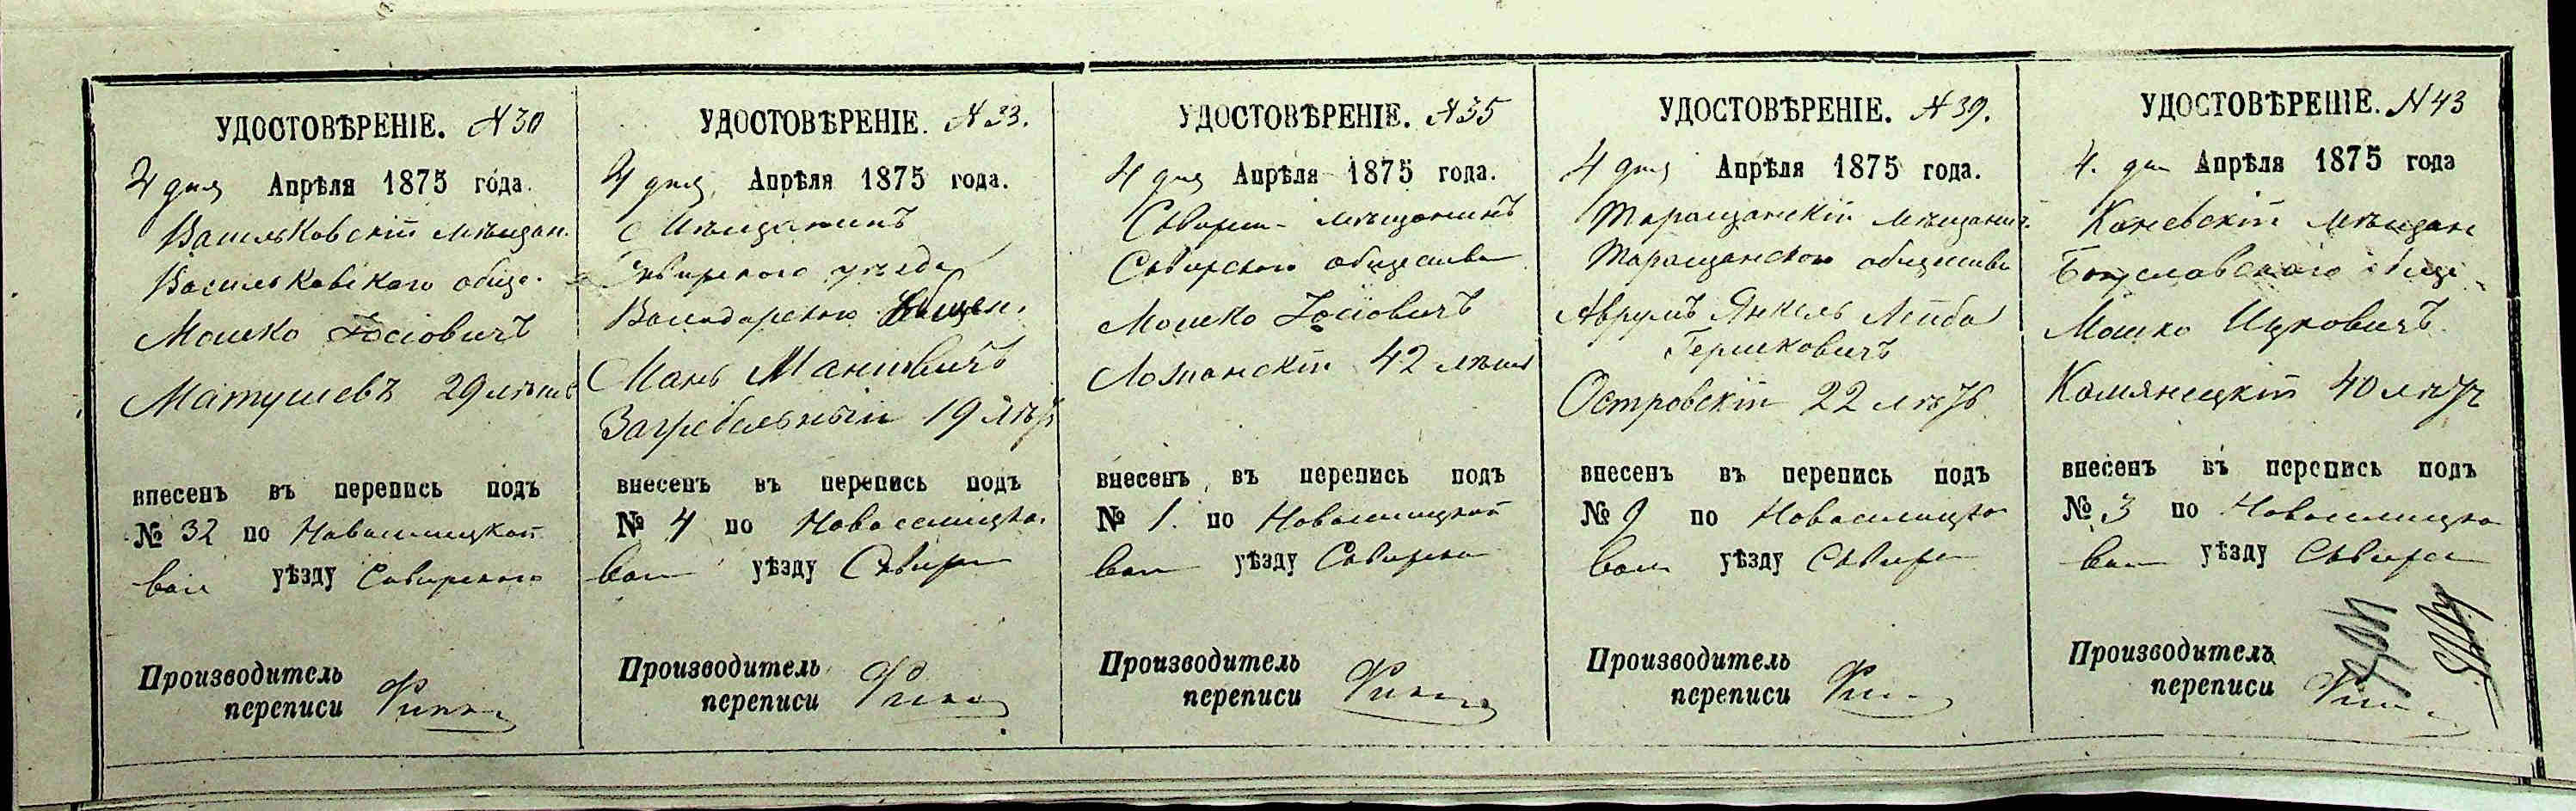 УДОСТОВѢРЕНІЕ. N 30
4 дня Апрѣля 1875 года.
Васильковскій мѣщан.
Васильковскаго обще.
Мошко Іосіовичъ
Матушевъ 29 лѣтъ
внесенъ въ перепись подъ
№ 32 по Новоселицкой
вол уѣзду Сквирскаго
Производитель
переписи
УДОСТОВѢРЕНІЕ. N 33.
4 дня Апрѣля 1875 года.
Мѣщанинъ
Сквирскаго уѣзда
Володарскаго общен.
Мань Маніовичъ
Загребельный 19 лѣтъ
внесенъ въ перепись подъ
№ 4 по Новоселицко.
вол уѣзду Сквирс
Производитель
переписи
УДОСТОВѢРЕНІЕ. N 35
4 дня Апрѣля 1875 года.
Сквирск мѣщанинъ
Сквирскаго общества
Мошко Іосіовичъ
Ложанскій 42 лѣтъ
внесенъ въ перепись подъ
№ 1. по Новоселицкой
вол уѣзду Сквирска
Производитель
переписи
УДОСТОВѢРЕНІЕ. N 39.
4 дня Апрѣля 1875 года.
Таращанскій мѣщанин.
Таращанскаго общества
Аврумъ Янкель Лейба
Гершковичъ
Островскій 22 лѣтъ
внесенъ въ перепись подъ
№ 9 по Новоселицко
вол уѣзду Сквирс
Производитель
переписи
УДОСТОВѢРЕНІЕ. N 43
4. дня Апрѣля 1875 года
Каневскій мѣщан
Богуславскаго обще
Мошко Ицковичъ
Камянецкій 40 лѣтъ
внесенъ въ перепись подъ
№ 3 по Новоселицко
вол уѣзду Сквирс
Производитель
переписи